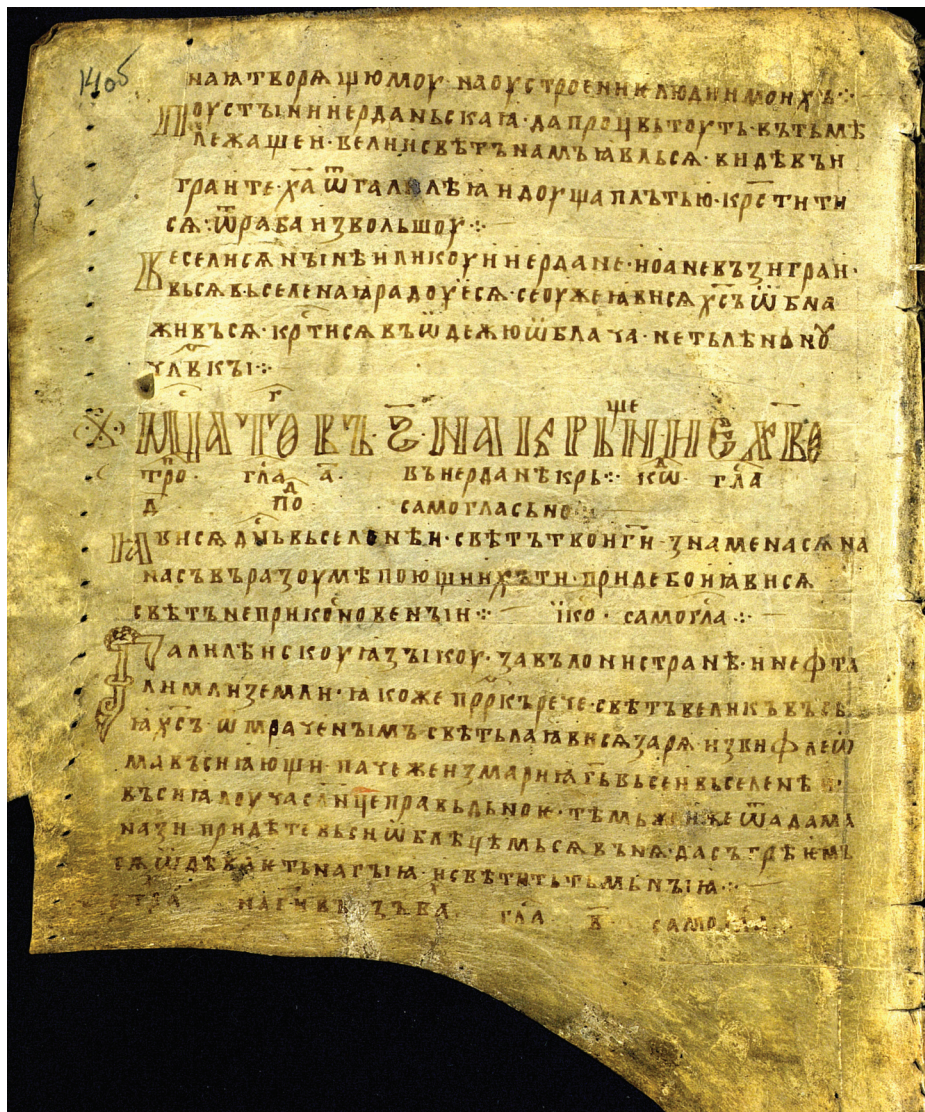 140б
наꙗ творѧщюмоу · на оустроениѥ людии моихъ ⁘
Поустъıни иерданьскаꙗ · да процвьтоуть · въ тьмѣ
лежащеи · велии свѣтъ намъ ꙗвльсѧ · видѣвъи
граѥте · х҃а ѿ галилѣꙗ и доуша плътью · крститї
сѧ · ѿ раба изволъшоу ⁘
Веселисѧ нъıнѣ и ликоуи иердане · иоане възиграи ·
вьсѧ вьселенаꙗ радоуесѧ · се оуже ꙗвисѧ х҃съ ѡбна
живъсѧ · кртисѧ въ ѡдежю ѡблача · нетьлѣньноу
члв҃къı ⁘
М҃ца того въ · ѕ҃ · на кр҃щениѥ х҃во
тро · гла · а · въ иерданѣ кр ⁘ · кѡ · гла
д · по · самогласьно
Ꙗвисѧ дн҃ь вьселенѣи · свѣтъ твои г҃и знаменасѧ на
насъ въ разоумѣ поющиихъ ти · приде бо и ꙗвисѧ
свѣтъ неприкосновенъıи ⁘ їко · самогла ⁘
Галилѣискоу ꙗзъıкоу · завълони странѣ · и нефта
лимли земли · ꙗкоже пр҃ркъ рече · свѣтъ великъ въсь
ꙗ х҃съ · ѡмраченъıмъ свѣтьла ꙗвисѧ зарѧ · из вифлеѡ
ма въсиꙗющи · паче же из мариꙗ г҃ь вьсеи вьселенѣ ·
въсиꙗ лоуча слн҃це правьдьноѥ · тѣмьже иже ѿ адама
нази · придѣте вьси ѡблѣцѣмьсѧ въ нѧ · да съгрѣѥмъ
сѧ ѡдѣваѥть нагъıꙗ · и свѣтить тьмьнъıꙗ ⁘
гла · в · само